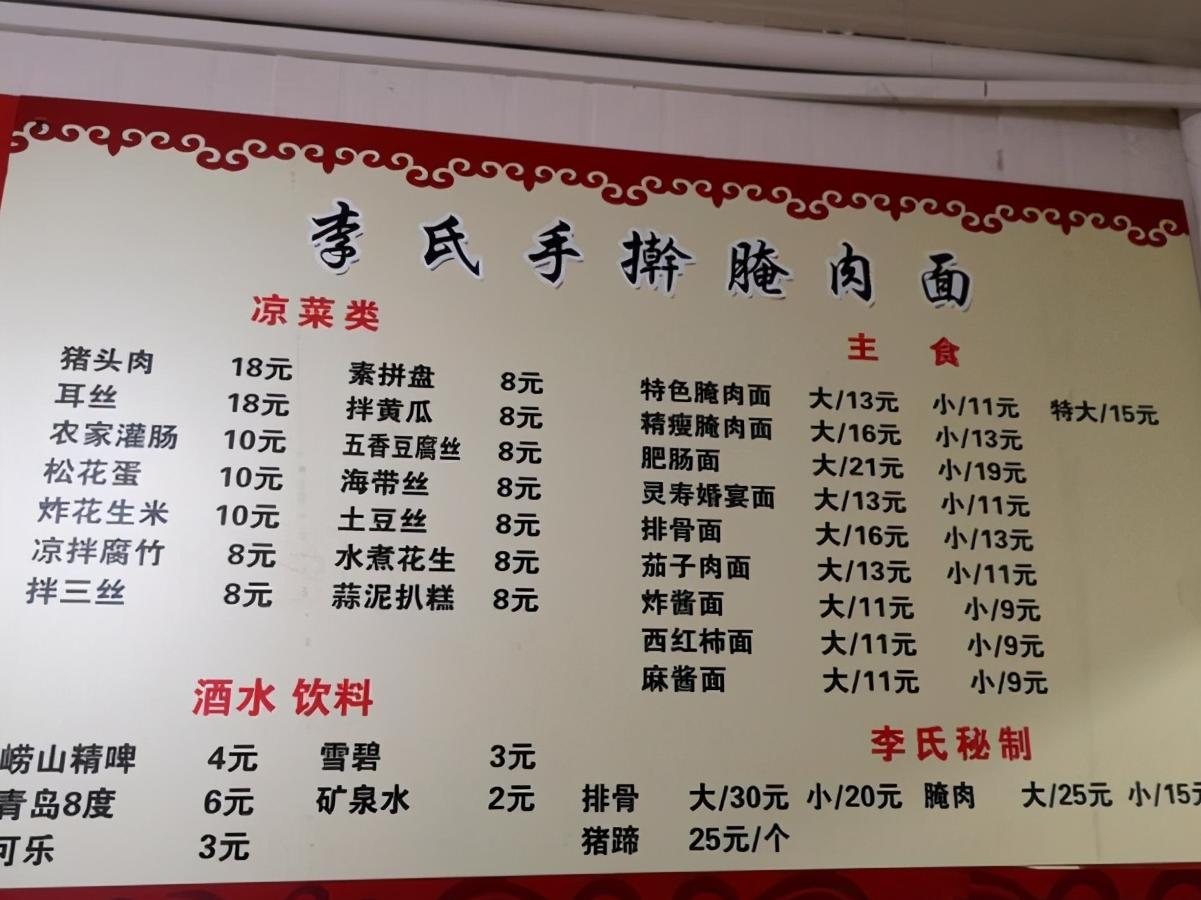 李氏手擀腌肉面
凉菜类
猪头肉 18元 素拼盘 8元
耳丝 18元 拌黄瓜 8元
农家灌肠 10元 五香豆腐丝 8元
松花蛋 10元 海带丝 8元
炸花生米 10元 土豆丝 8元
凉拌腐竹 8元 水煮花生 8元
拌三丝 8元 蒜泥扒糕 8元
主食
特色腌肉面 大/13元 小/11元 特大/15元
精瘦腌肉面 大/16元 小/13元
肥肠面 大/21元 小/19元
灵寿婚宴面 大/13元 小/11元
排骨面 大/16元 小/13元
茄子肉面 大/13元 小/11元
炸酱面 大/11元 小/9元
西红柿面 大/11元 小/9元
麻酱面 大/11元 小/9元
酒水 饮料
崂山精啤 4元 雪碧 3元
青岛8度 6元 矿泉水 2元
可乐 3元
李氏秘制
排骨 大/30元 小/20元 腌肉 大/25元 小/15元
猪蹄 25元/个